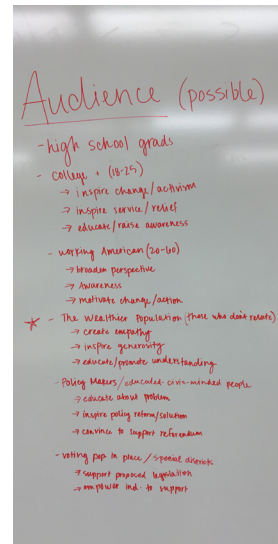 Audience (possible)
- high school grads
- college + (18-25)
→ inspire change/activism
→ inspire service/relief
→ educate/raise awareness
- working American (20-60)
→ broaden perspective
→ Awareness
→ motivate change/action
* - The Wealthier Population (those who don't relate)
→ create empathy
→ inspire generosity
→ educate/promote understanding
- Policy Makers/educated civic-minded people
→ educate about problem
→ inspire policy reform/solution
→ convince to support referendum
- voting pop in place / special districts
→ support proposed legislation
→ empower ind. to support